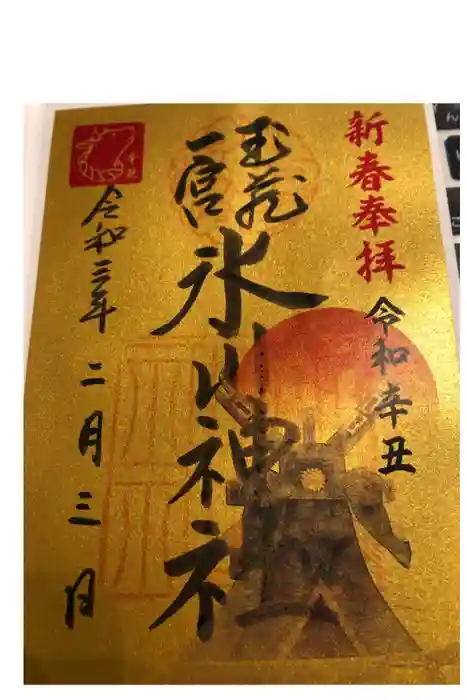 新春奉拝
令和辛丑
武蔵
一宮
氷川神社
令和三年 二月三日